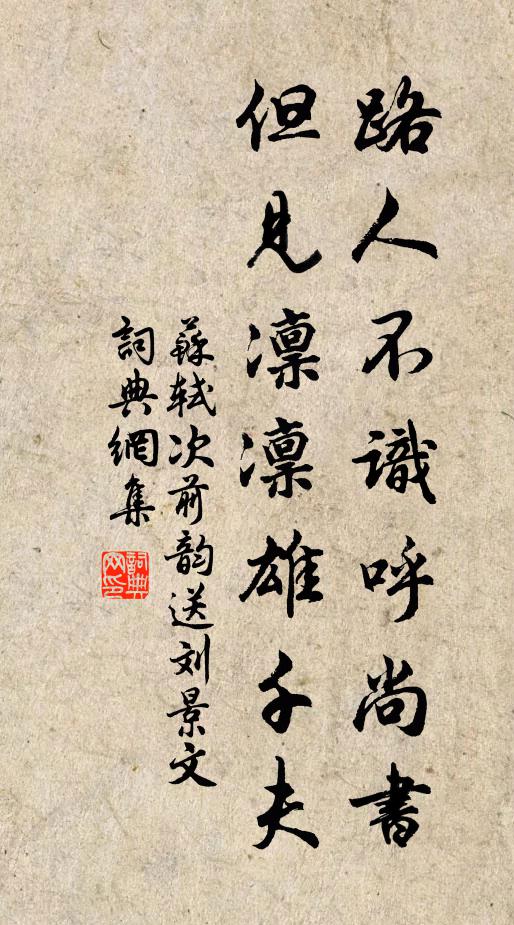 路人不識呼尚書
但見凛凛雄千夫
蘇軾次前韵送刘景文
詞典網集
詞典网印